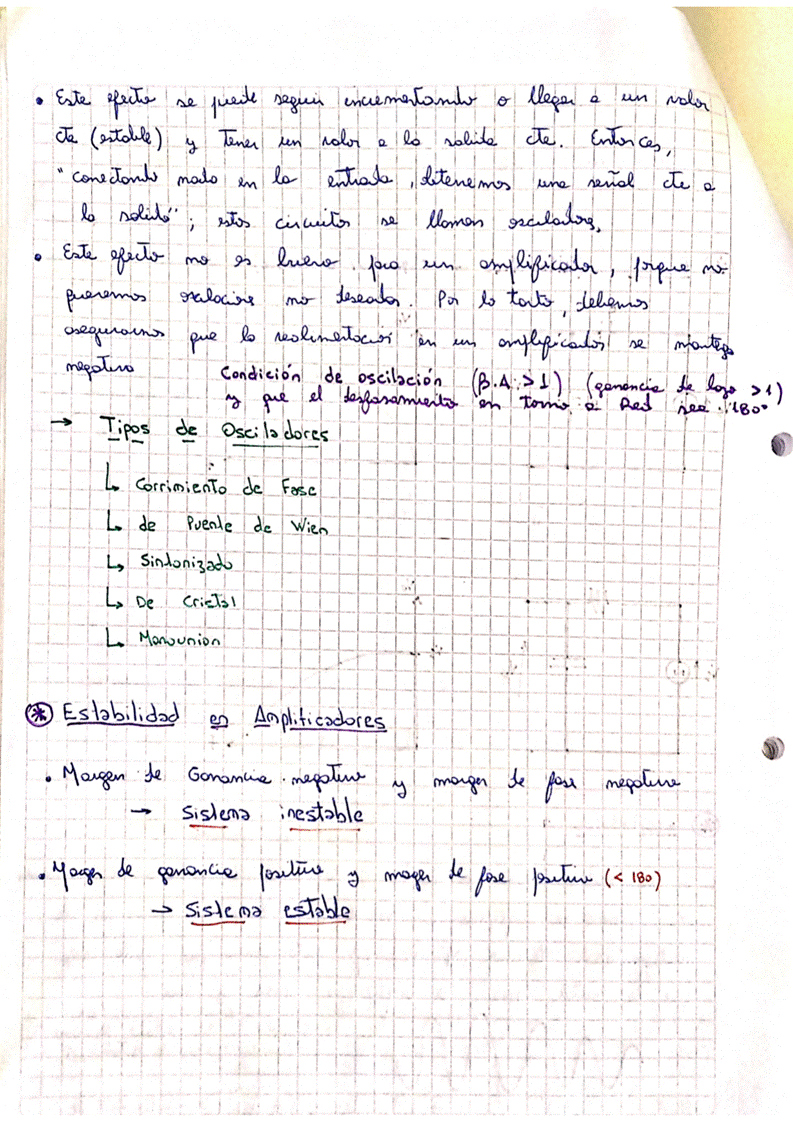 • Este efecto se puede seguir incrementando o llegar a un valor
cte (estable) y tener un valor a la salida cte. Entonces,
"conectando nada en la entrada, obtenemos una señal cte a
la salida"; estos circuitos se llaman osciladores.
• Este efecto no es bueno para un amplificador, porque no
queremos oscilaciones no deseadas. Por lo tanto, debemos
asegurarnos que la realimentación en un amplificador se mantega
negativa
Condición de oscilación (β.A > 1) (ganancia de lazo > 1)
y que el desfasamiento en torno a Red sea 180°
→ Tipos de Osciladores
↳ Corrimiento de Fase
↳ de Puente de Wien
↳ Sintonizado
↳ De Cristal
↳ Monounion
* Estabilidad en Amplificadores
• Margen de Ganancia negativa y margen de fase negativa
→ Sistema inestable
• Margen de ganancia positiva y margen de fase positiva (< 180)
→ Sistema estable